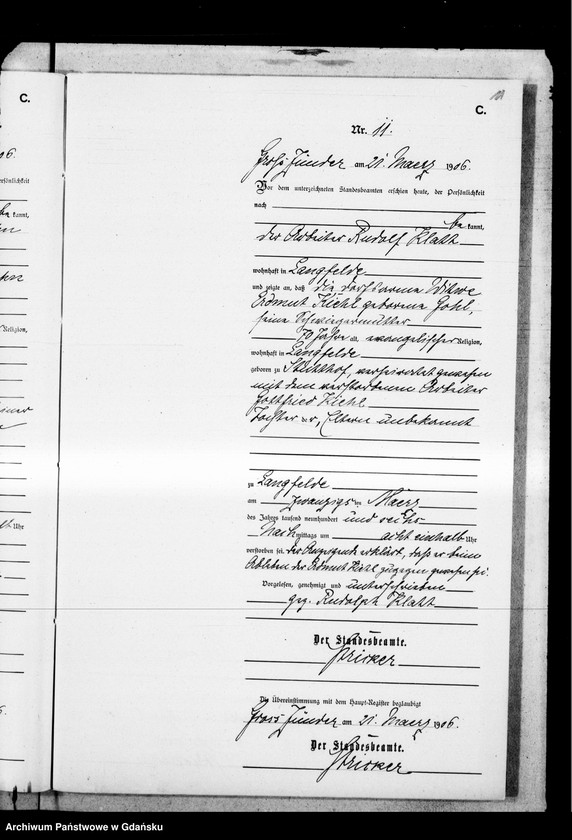 C.
C.
11
Nr. 11.
06.
Groß Zünder am 21. Maerz 1906.
Vor dem unterzeichneten Standesbeamten erschien heute, der Persönlichkeit
nach
be kannt,
der Arbeiter Rudolf Klatt
wohnhaft in Langfelde
und zeigte an, daß die verstorbene Witwe
Erdmut Kiehl geborene Gohl,
seine Schwiegermutter
70 Jahre alt, evangelischer Religion,
wohnhaft in Langfelde
geboren zu Stutthof, verheiratet gewesen
mit dem verstorbenen Arbeiter
Gottfried Kiehl
Tochter der, Eltern unbekannt
zu Langfelde
am zwanzigsten Maerz
des Jahres tausend neunhundert und sechs
Nachmittags um acht einhalb Uhr
verstorben sei. Der Anzeigende erklärt, daß er beim
Ableben der Erdmut Kiehl zugegen gewesen sei.
Vorgelesen, genehmigt und unterschrieben
gez. Rudolph Klatt
Der Standesbeamte.
Stricker
Die Übereinstimmung mit dem Haupt-Register beglaubigt
Gross Zünder am 21. Maerz 1906.
Der Standesbeamte.
Stricker
Archiwum Państwowe w Gdańsku